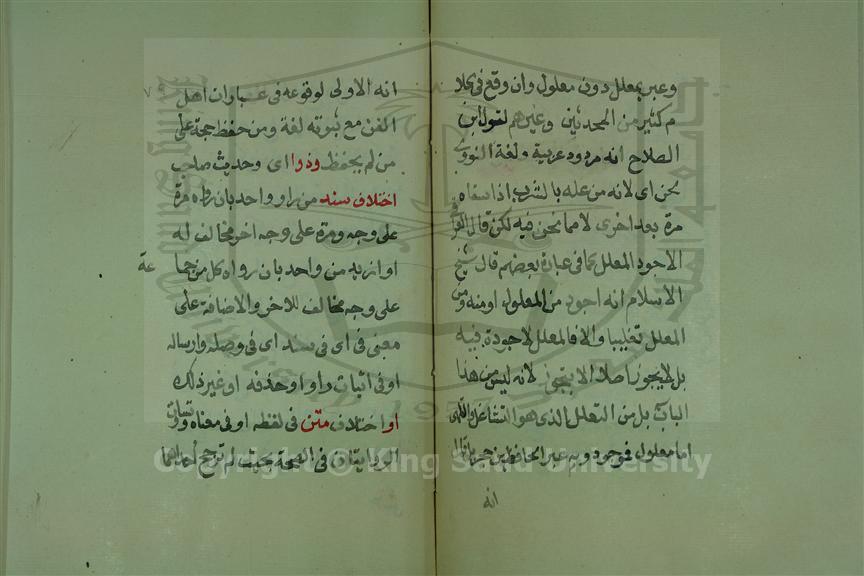 وعبر بمعلل دون معلول وان وقع في كلا
م كثير من المحدثين وغيرهم لقول ابن
الصلاح انه مردود عربية ولغة النووي
لحن اى لانه من عله بالشرب اذا سقاه
مرة بعد اخرى لا مما نحن فيه لكن قال
الاجود المعل كما في عبارة بعضهم قال شيخ
الاسلام انه اجود من المعلول او منه ومن
المعلل تغليبا والا فالمعلل لا جودة فيه
بل لا يجوز اصلا الا بتجوز لانه ليس من هذا
الباب بل من التعلل الذى هو التشاغل والتلهى
اما معلول فوجود وبه عبر الحافظ بن حجر
انه
انه الاولى لوقوعه في عبارات اهل
الفن مع ثبوته لغة ومن حفظ حجة على
من لم يحفظ وذوا اى وحديث صاحب
اختلاف سند من راو واحد بان رواه مرة
على وجه ومرة على وجه اخر مخالف له
او ازيد من واحد بان رواه كل من جما
عة
على وجه مخالف للاخر والاضافة على
معنى في اى في سند اى في وصله وارساله
او في اثبات راو او حذفه او غير ذلك
او اختلاف متن في لفظه او في معناه وتساوت
الروايتان في الصحة بحيث لم ترجح احداهما
Copyright © King Saud University